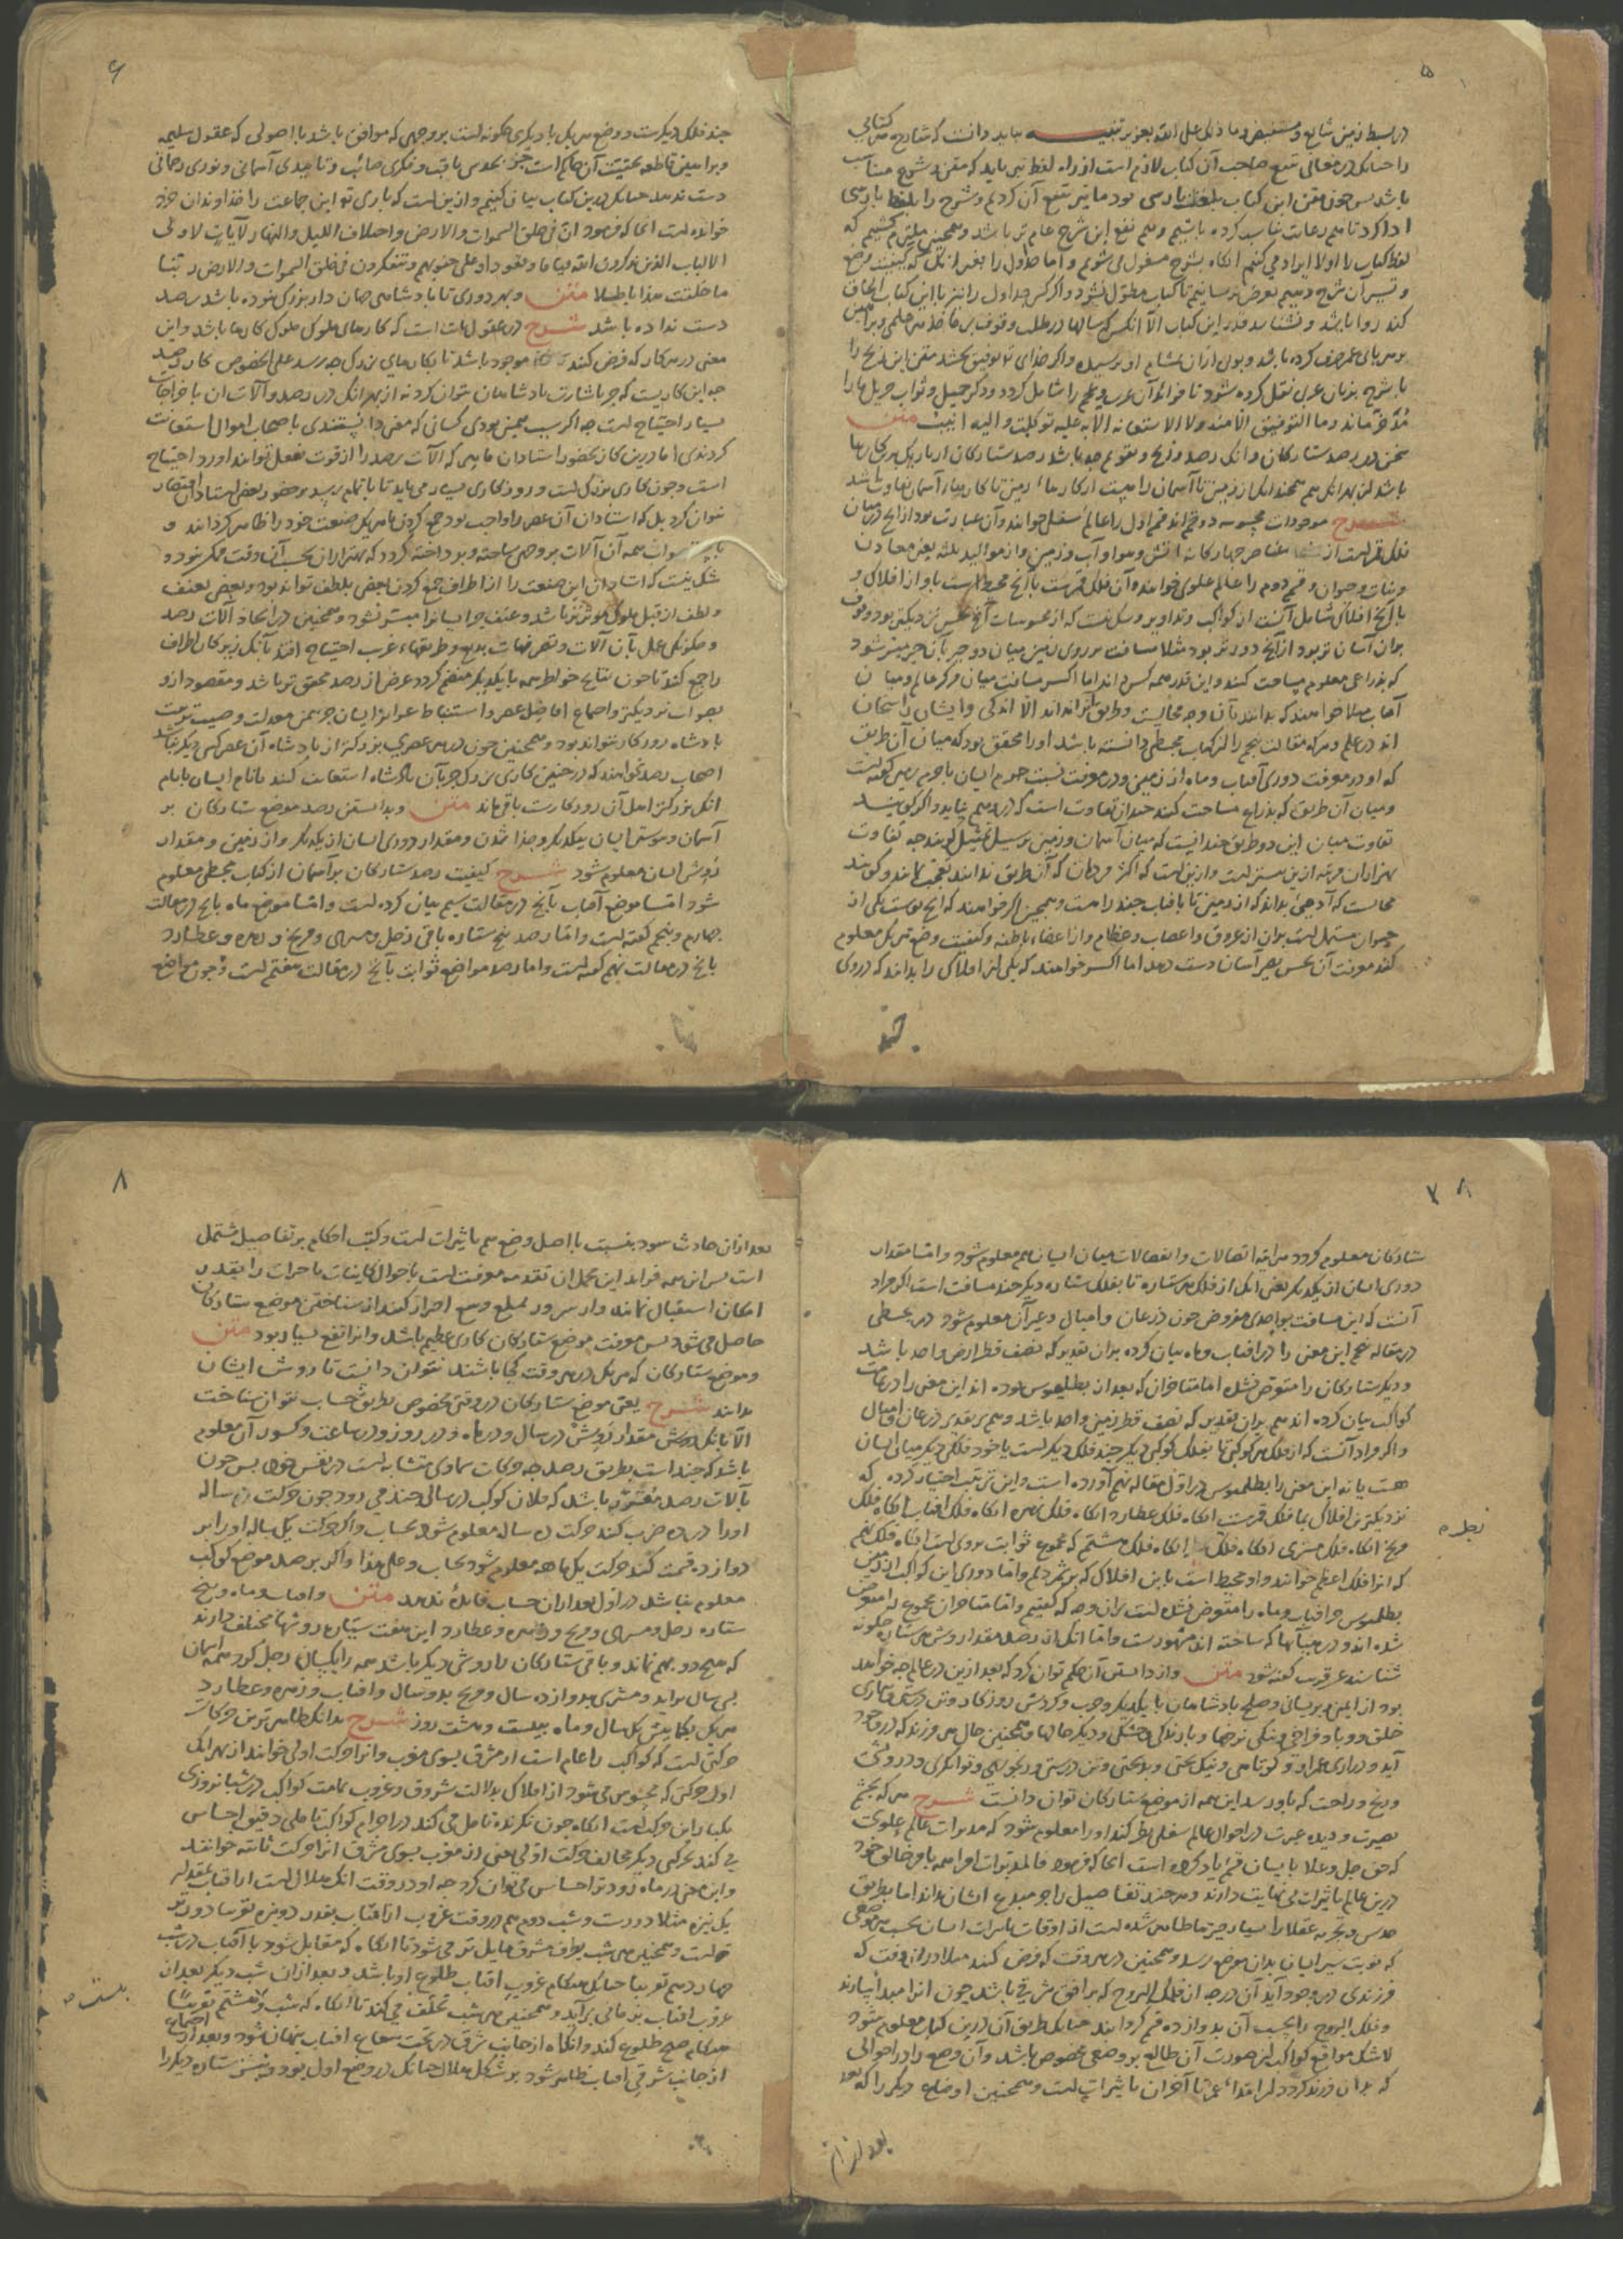 ۵
در بسط زمین شایع و مستفیض و ما ذلک علی الله بعزیز تنبیه بباید دانست که شارح هر کتابی
را چنانک در معانی تتبع صاحب آن کتاب لازم است از راه لفظ نیز باید که متن و شرح متناسب
باشد پس چون متن این کتاب بلفظ پارسی بود ما نیز تتبع آن کردیم و شرح را بلفظ پارسی
ادا کرد تا هم رعایت تناسب کرده باشیم و هم نفع این شرح عام تر باشد و همچنین ملتزم گشتیم که
لفظ کتاب را اولا ایراد می کنیم آنگاه بشرح مشغول می شویم و اما جداول را بغیر از آنک
و تفسیر آن شرح دهیم تعرض نرسانیم تا کتاب مطول نشود و اگر کسی جداول را نیز با این کتاب الحاق
کند روا باشد و نشناسد قدر این کتاب الا آنکس که سالها در طلب وقوف بر مآخذ هر حکمی و براهین
هر بابی عمر صرف کرده باشد و اگر خدای تو توفیق بخشد متن این زیج را
با شرح بزبان عربی نقل کرده شود تا فوائد آن عرب و عجم را شامل گردد و ذکر جمیل و ثواب جزیل ما را
مدخر ماند و ما التوفیق الا منه ولا الاستعانة الا به علیه توکلت والیه انیب متن
سخن در رصد ستارگان و آنک رصد و زیج و تقویم چه باشد رصد ستارگان از باریک ترین کارها
باشد از بهر آنک هم چندانک از زمین تا آسمان راهست از کارهاء زمین تا کارهاء آسمان تفاوت باشد
شرح موجودات محسوسه دو قسم اند قسم اول را عالم سفلی خوانند و آن عبارت بود از آنچ در میان
فلک قمر است از عناصر چهارگانه آتش و هوا و آب و زمین و از موالید ثلثه یعنی معادن
و نبات و حیوان و قسم دوم را عالم علوی خوانند و آن فلک قمرست با آنچ محیط است باو از افلاک و
با آنچ افلاک شامل آنست از کواکب و تداویر و شک نیست که از محسوسات آنچ بحس نزدیکتر بود وقوف
بران آسان تر بود از آنچ دورتر بود مثلا مسافت بر روی زمین میان دو چیز بآن چیز میسر شود
که بذراعی معلوم مساحت کنند و این قدر همه کس داند اما اگر مسافت میان مرکز عالم و میان
آفتاب مثلا خواهند که بدانند بآن وجه محالست و طریق آنرا نداند الا اندکی و ایشان راسخان
اند در علم و هر که مقالت پنجم را از کتاب مجسطی دانسته باشد او را محقق بود که میان آن طریق
که او در معرفت دوری آفتاب و ماه از زمین و در معرفت نسبت جرم ایشان با جرم زمین گفته است
و میان آن طریق که بذراع مساحت کنند چندان تفاوت است که در وهم نیاید و اگر گویند
تفاوت میان این دو طریق چندانست که میان آسمان و زمین بر سبیل تمثیل گویند چه تفاوت
بهزاران مرتبه ازین بیشتر است و ازین است که اکثر مردمان که آن طریق ندانند تعجب نمایند و گویند
محالست که آدمی بداند که از زمین تا بآفتاب چند راهست و همچنین اگر خواهند که آنچ پوست یکی از
حیوان مشتمل است بران از عروق و اعصاب و عظام و از اعضاء باطنه و کیفیت وضع هر یک معلوم
کنند معرفت آن بحس بصر آسان دست دهد اما اگر خواهند که یکی از افلاک را بدانند که در وی
چند
۶
چند فلک دیگرست و وضع هر یک با دیگری چگونه است بر وجهی که موافق باشد با اصولی که عقول سلیمه
و براهین قاطعه بحقیقت آن حاکم است جز بحدس ثاقب و فکری صائب و تایید آسمانی و نوری رحمانی
دست ندهد چنانک درین کتاب بیان کنیم و ازین است که باری تع این جماعت را خداوندان خرد
خوانده است آنجا که فرمود ان فی خلق السموات والارض واختلاف اللیل والنهار لآیات لاولی
الالباب الذین یذکرون الله قیاما وقعودا وعلی جنوبهم ویتفکرون فی خلق السموات والارض ربنا
ما خلقت هذا باطلا متن و بهر دوری تا پادشاهی جهان دار بزرگ نبوده باشد رصد
دست نداده باشد شرح در معقولات است که کارهای ملوک ملوک کارها باشد و این
معنی در هر کار که فرض کنند موجود باشد تا بکارهای بزرگ چه رسد علی الخصوص کار رصد
چه این کاریست که جز باشارت پادشاهان نتوان کرد نه از بهر آنک در رصد و آلات آن باخراجات
بسیار احتیاج است چه اگر سبب همین بودی کسانی که معنی دانستندی باصحاب اموال استعانت
کردندی اما درین کار بحضور استادان ماهر که آلات رصد را از قوت بفعل توانند آورد احتیاج
است و چون کاری بزرگ است و روزگاری بسیار می باید تا باتمام رسد بر حضور بعضی استادان اقتصار
نتوان کرد بلک استادان آن عصر را واجب بود جمع کردن تا هر یک صنعت خود را ظاهر گردانند و
همه آن آلات بر وجهی ساخته و پرداخته گردد که بهتر از آن بحسب آن وقت ممکن نبود و
شک نیست که استادان این صنعت را از اطراف جمع کردن بعضی بلطف تواند بود و بعضی بعنف
و لطف از قبل ملوک مؤثرتر باشد و عنف جز ایشانرا میسر نشود و همچنین در اتخاذ آلات رصد
و چگونگی عمل بآن آلات و تصرفهات بدیع و طریقهاء غریب احتیاج افتد تا آنک زیرکان اطراف
را جمع کنند تا چون نتایج خواطر همه با یکدیگر منضم گردد غرض از رصد محقق تر باشد و مقصود ازو
بصواب نزدیکتر و اجتماع افاضل عصر و استنباط غرایز ایشان جز بیمن معدلت و صیت تربیت
پادشاه روزگار نتواند بود و همچنین چون در هر عصری بزرگتر از پادشاه آن عصر کسی دیگر نباشد
اصحاب رصد نخواهند که در چنین کاری بزرگ جز بآن پادشاه استعانت کنند تا نام ایشان با نام
آنک بزرگتر اهل آن روزگارست باقی ماند متن و بدانستن رصد موضع ستارگان بر
آسمان و پیوستن ایشان بیکدیگر و جدا شدن و مقدار دوری ایشان از یکدیگر و از زمین و مقدار
روش ایشان معلوم شود شرح کیفیت رصد ستارگان بر آسمان از کتاب مجسطی معلوم
شود اما موضع آفتاب بآنچ در مقالت سیم بیان کرده است و اما موضع ماه بآنچ در مقالت
چهارم و پنجم گفته است و اما رصد پنج ستاره باقی زحل و مشتری و مریخ و زهره و عطارد
بآنچ در مقالت نهم گفته است و اما رصد مواضع ثوابت بآنچ در مقالت هفتم است و چون مواضع
۷ ۸
ستارگان معلوم گردد هرآینه اتصالات و انفصالات میان ایشان هم معلوم شود و اما مقدار
دوری ایشان از یکدیگر یعنی آنک از فلک هر ستاره تا بفلک ستاره دیگر چند مسافت است اگر مراد
آنست که این مسافت بواحدی مفروض چون ذرعان و امیال و غیر آن معلوم شود در مجسطی
در مقاله پنجم این معنی را در آفتاب و ماه بیان کرده بدان تقدیر که نصف قطر ارض واحد باشد
و دیگر ستارگان را متعرض نشده اما متاخران که بعد از بطلمیوس بوده اند این معنی را در تمامت
کواکب بیان کرده اند هم بدان تقدیر که نصف قطر زمین واحد باشد و هم بر تقدیر ذرعان و امیال
و اگر مراد آنست که از فلک هر کوکبی تا بفلک کوکبی دیگر چند فلک دیگر است یا خود فلکی دیگر میان ایشان
هست یا نه این معنی را بطلمیوس در اول مقاله نهم آورده است و این ترتیب اختیار کرده که
نزدیکترین افلاک بما فلک قمرست آنگاه فلک عطارد آنگاه فلک زهره آنگاه فلک آفتاب آنگاه فلک
مریخ آنگاه فلک مشتری آنگاه فلک زحل آنگاه فلک هشتم که مجموع ثوابت بروی است آنگاه فلک نهم
که آنرا فلک اعظم خوانند و او محیط است باین افلاک که برشمردیم و اما دوری این کواکب از زمین
بطلمیوس جز آفتاب و ماه را متعرض نشده است بران وجه که گفتیم و اما متاخران مجموع را متعرض
شده اند و در هیئاتها که ساخته اند مشهورست و اما آنک از رصد مقدار روش هر ستاره چگونه
شناسند عن قریب گفته شود متن و از دانستن آن حکم توان کرد که بعد ازین در عالم چه خواهد
بود از ایمنی و پریشانی و صلح پادشاهان با یکدیگر و حرب و گردش روزگار و تن درستی و بیماری
خلق و وبا و فراخی و تنگی نرخها و بارندگی و خشکی و دیگر حالها و همچنین حال هر فرزند که در وجود
آید و درازی عمر او و کوتاهی و نیک بختی و بدبختی و تن درستی و رنجوری و توانگری و درویشی
و رنج و راحت که باو رسد این همه از موضع ستارگان توان دانست شرح هر که بچشم
بصیرت و دیده عبرت در احوال عالم سفلی نظر کند او را معلوم شود که مدبرات عالم علوی
که حق جل و علا بایشان قسم یاد کرده است آنجا که فرمود فالمدبرات امرا همه بامر خالق خود
درین عالم تاثیرات بی نهایت دارند و هر چند تفاصیل را جز مبدع ایشان نداند اما بطریق
حدس و تجربه عقلا را بسیار چیزها ظاهر شده است از اوقات تاثیرات ایشان بحسب هر موضعی
که نوبت سیر ایشان بدان موضع رسد و همچنین در هر وقت که فرض کنند مثلا در آن وقت که
فرزندی در وجود آید آن درجه از فلک البروج که بر افق شرقی باشد چون آنرا مبدأ سازند
و فلک البروج را بحسب آن بدوازده قسم گردانند چنانک طریق آن درین کتاب معلوم شود
لاشک مواقع کواکب از صورت آن طالع بر وضعی مخصوص باشد و آن وضع را در احوالی
که بدان فرزند گردد از ابتداء عمر تا آخر آن تاثیرات است و همچنین اوضاع دیگر را که بعد
بعد از آن
۸
بعد از آن حادث شود بنسبت با اصل وضع هم تاثیرات است و کتب احکام بر تفاصیل مشتمل
است پس ازین همه فواید این محل آن تقدمه معرفت است باحوال کاینات تا خیرات را بقدر
امکان استقبال نمایند و از شرور بمبلغ وسع احتراز کنند از شناختن موضع ستارگان
حاصل می شود پس معرفت موضع ستارگان کاری عظیم باشد و آنرا نفع بسیار بود متن
و موضع ستارگان که هر یک در هر وقت کجا باشند نتوان دانست تا روش ایشان
ندانند شرح یعنی موضع ستارگان در وقتی مخصوص بطریق حساب نتوان شناخت
الا بآنک مقدار روش در سال و در ماه و در روز و در ساعت و کسور آن معلوم
باشد که چند است بطریق رصد چه حرکات سماوی متشابه است در نفس خود پس چون
بآلات رصد مقرر باشد که فلان کوکب در سالی چند می رود چون حرکت ده ساله
او را در ده ضرب کنند حرکت ده ساله معلوم شود بحساب و اگر حرکت یک ساله او را بر
دوازده قسمت کنند حرکت یک ماهه معلوم شود بحساب و علی هذا و اگر برصد موضع کوکب
معلوم نباشد در اول بعد از آن حساب فایده ندهد متن و آفتاب و ماه و پنج
ستاره زحل و مشتری و مریخ و زهره و عطارد این هفت سیاره روشها مختلف دارند
که هیچ دو بهم نماند و باقی ستارگان را روشی دیگر باشد همه را یکسان زحل گرد همه آسمان
بسی سال برآید و مشتری بدوازده سال و مریخ بدو سال و آفتاب و زهره و عطارد
هر یک بیکمابیش یک سال و ماه ببیست و هشت روز شرح بدانک ظاهرترین حرکات
حرکتی است که کواکب را عام است از مشرق بسوی مغرب و آنرا حرکت اولی خوانند از بهر آنک
اول حرکتی که محسوس می شود از افلاک بدلالت شروق و غروب تمامت کواکب در شبانروزی
یکبار این حرکتست آنگاه چون نگرنده تامل می کند در اجرام کواکب تاملی دقیق احساس
می کند بحرکتی دیگر مخالف حرکت اولی یعنی از مغرب بسوی مشرق آنرا حرکت ثانیه خوانند
و این معنی در ماه زودتر احساس می توان کرد چه او در وقت آنک هلال است از آفتاب بمقدار
یک نیزه مثلا دورست و شب دوم هم در وقت غروب از آفتاب بقدر دو نیزه تقریبا دورتر
است و همچنین هر شب بطرف مشرق مایل تر می شود تا آنگاه که مقابل شود با آفتاب در شب
چهاردهم تقریبا چنانک هنگام غروب آفتاب طلوع او باشد و بعد از آن شب دیگر بعد از
غروب آفتاب بزمانی برآید و همچنین هر شب تخلف می کند تا آنگاه که شب بیست و هشتم تقریبا
هنگام صبح طلوع کند و آنگاه از جانب شرق در تحت شعاع آفتاب پنهان شود و بعد از اجتماع
از جانب شرقی آفتاب ظاهر شود بر شکل هلال چنانک در وضع اول بود و پنج ستاره دیگر را